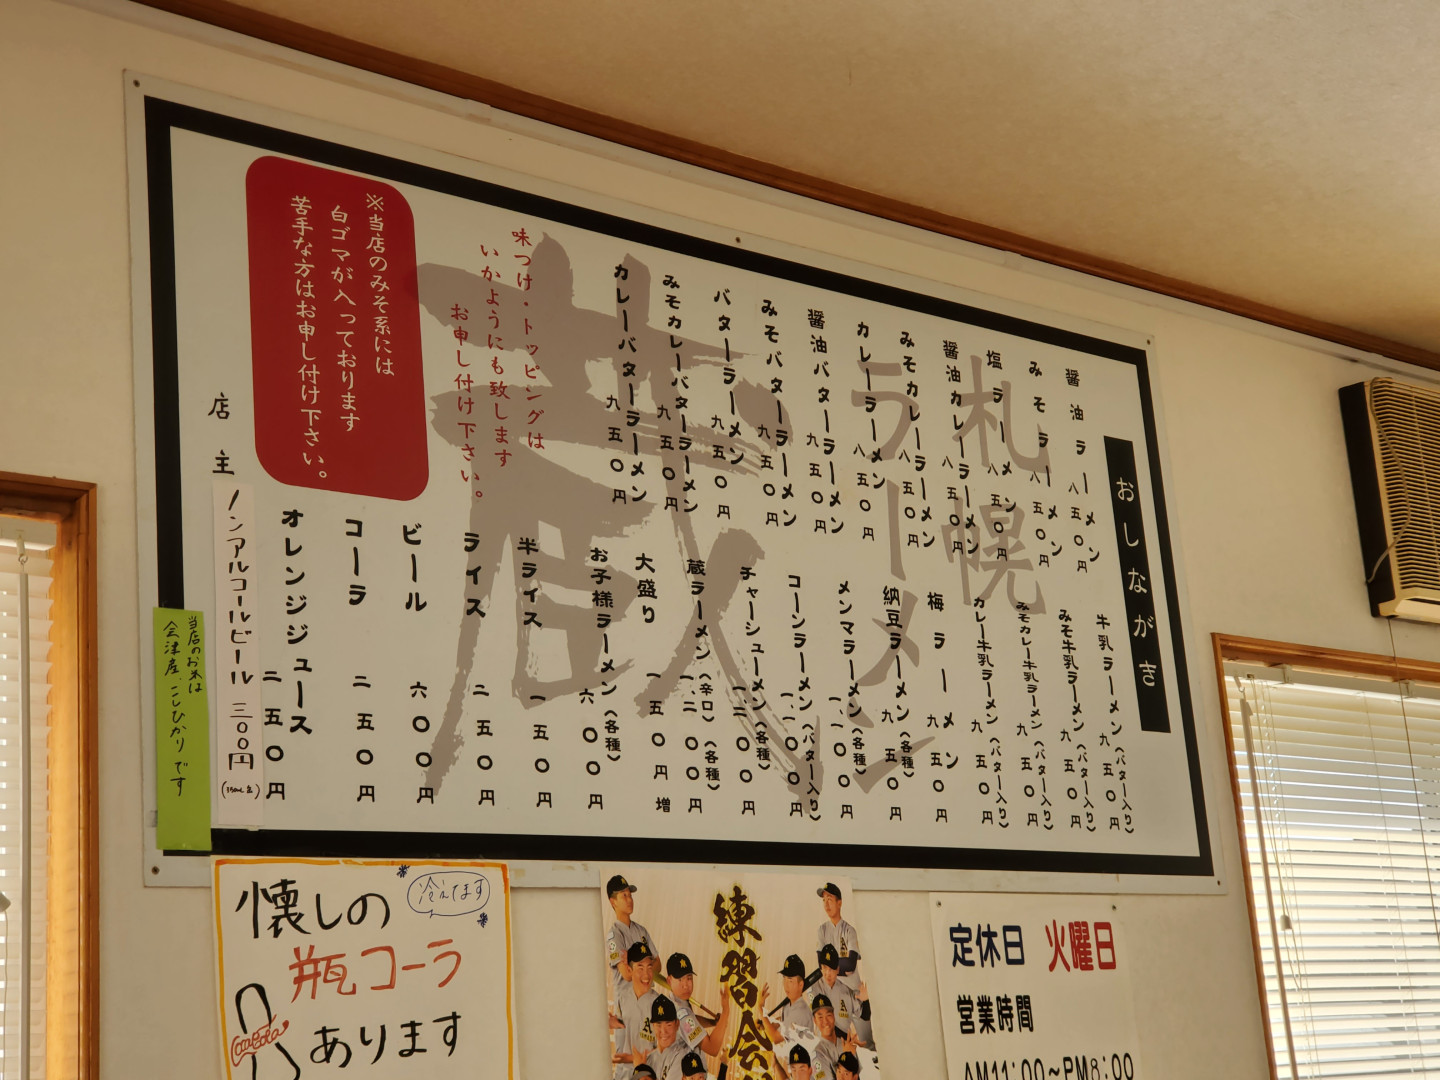 おしながき
札幌
ラーメン
蔵
醤油ラーメン 八五〇円
みそラーメン 八五〇円
塩ラーメン 八五〇円
醤油カレーラーメン 八五〇円
みそカレーラーメン 八五〇円
カレーラーメン 八五〇円
醤油バターラーメン 九五〇円
みそバターラーメン 九五〇円
バターラーメン 九五〇円
みそカレーバターラーメン 九五〇円
カレーバターラーメン 九五〇円
味つけ・トッピングは
いかようにも致します
お申し付け下さい。
※当店のみそ系には
白ゴマが入っております
苦手な方はお申し付け下さい。
店主
牛乳ラーメン(バター入り) 九五〇円
みそ牛乳ラーメン(バター入り) 九五〇円
みそカレー牛乳ラーメン(バター入り) 九五〇円
カレー牛乳ラーメン(バター入り) 九五〇円
梅ラーメン 九五〇円
納豆ラーメン(各種) 九五〇円
メンマラーメン(各種) 一、一〇〇円
コーンラーメン(バター入り) 一、一〇〇円
チャーシューメン(各種) 一、二〇〇円
蔵ラーメン(辛口)(各種) 一、二〇〇円
大盛り 一五〇円増
お子様ラーメン(各種) 六〇〇円
半ライス 一五〇円
ライス 二五〇円
ビール 六〇〇円
コーラ 二五〇円
オレンジジュース 二五〇円
ノンアルコールビール 三〇〇円
当店のお米は
会津産、こしひかりです
懐しの
冷えてます
瓶コーラ
あります
練習会
定休日 火曜日
営業時間
AM11:00~PM8:00